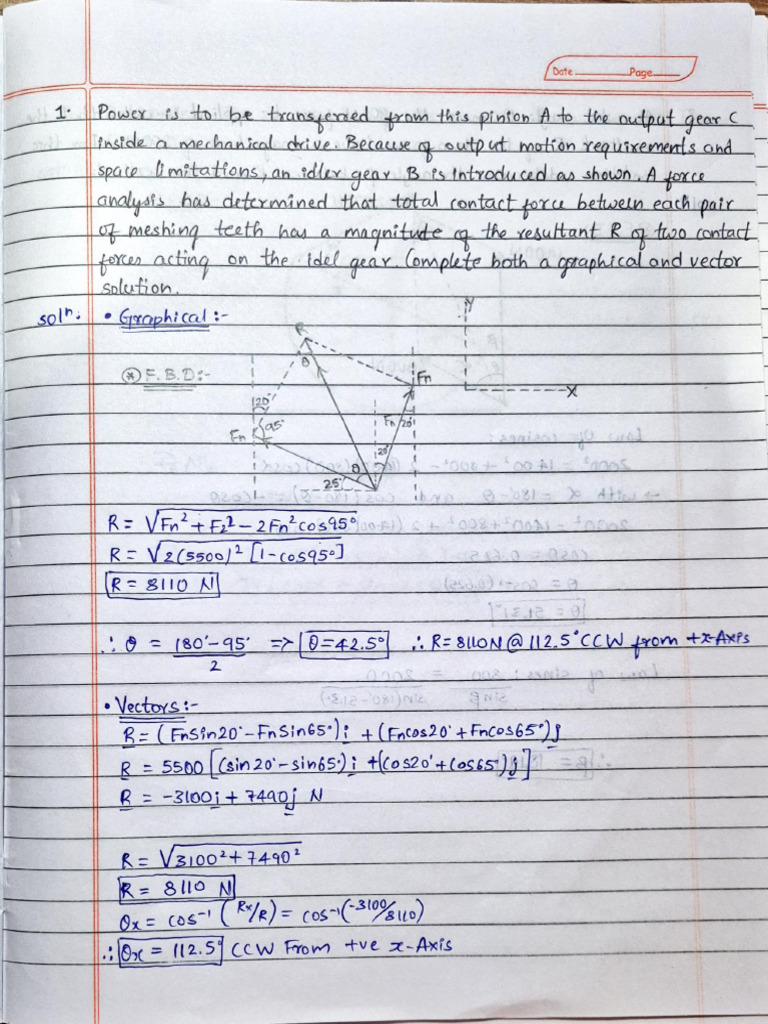 Date Page
1. Power is to be transferred from this pinion A to the output gear C
inside a mechanical drive. Because of output motion requirements and
space limitations, an idler gear B is introduced as shown. A force
analysis has determined that total contact force between each pair
of meshing teeth has a magnitude of the resultant R of two contact
forces acting on the idel gear. Complete both a graphical and vector
solution.
Soln. • Graphical :-
Y
R
θ
* F.B.D:-
Fn
X
20°
95°
Fn
Fn 20°
20°
θ
25°
R = √Fn² + F2² - 2Fn² cos95°
R = √2(5500)² [1-cos95°]
R = 8110 N
∴ θ = 180°-95°/2 => θ=42.5° ∴ R=8110N @ 112.5° CCW from +x-Axis
• Vectors:-
R = (FnSin20° - FnSin65°)i + (Fncos20° + Fncos65°)j
R = 5500 [(sin20° - sin65°)i + (cos20° + cos65°)j]
R = -3100i + 7490j N
R = √3100² + 7490²
R = 8110 N
θx = cos⁻¹ (Rx/R) = cos⁻¹(-3100/8110)
∴ θx = 112.5° CCW From +ve x-Axis